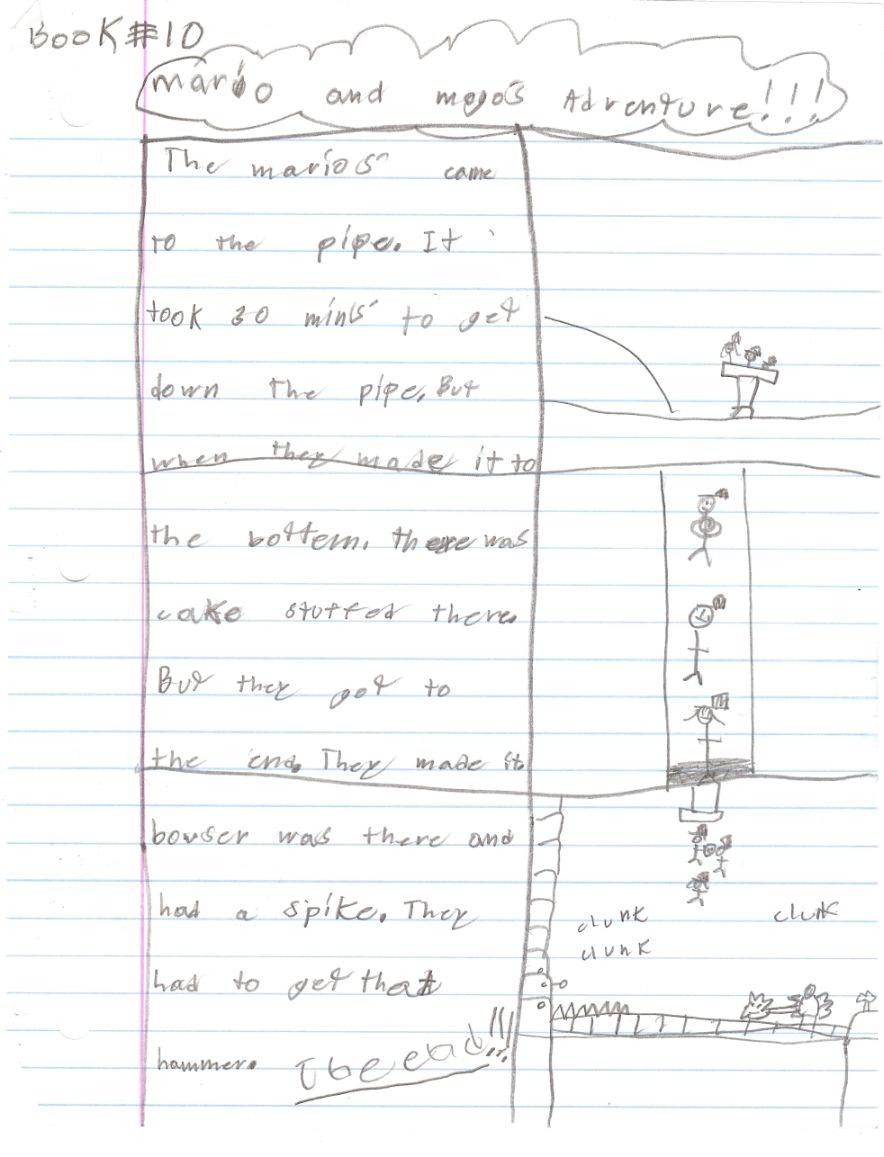 BOOK #10
mario and mojo's Adventure!!!
The marios' came
to the pipe. It
took 30 mins' to get
down the pipe. But
when they made it to
the bottem. there was
cake stuffed there.
But they got to
the end. They made it.
bowser was there and
had a spike. They
had to get that
hammer. The end!!!
clunk clunk
clunk